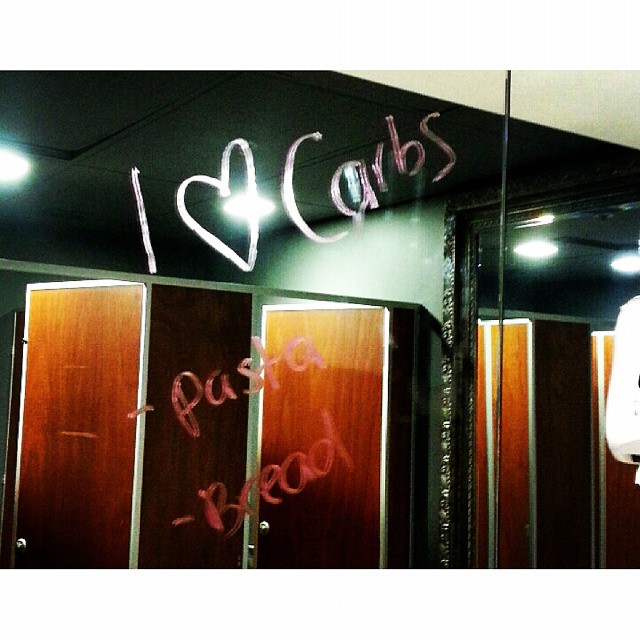 I ♡ Carbs
- pasta
- Bread